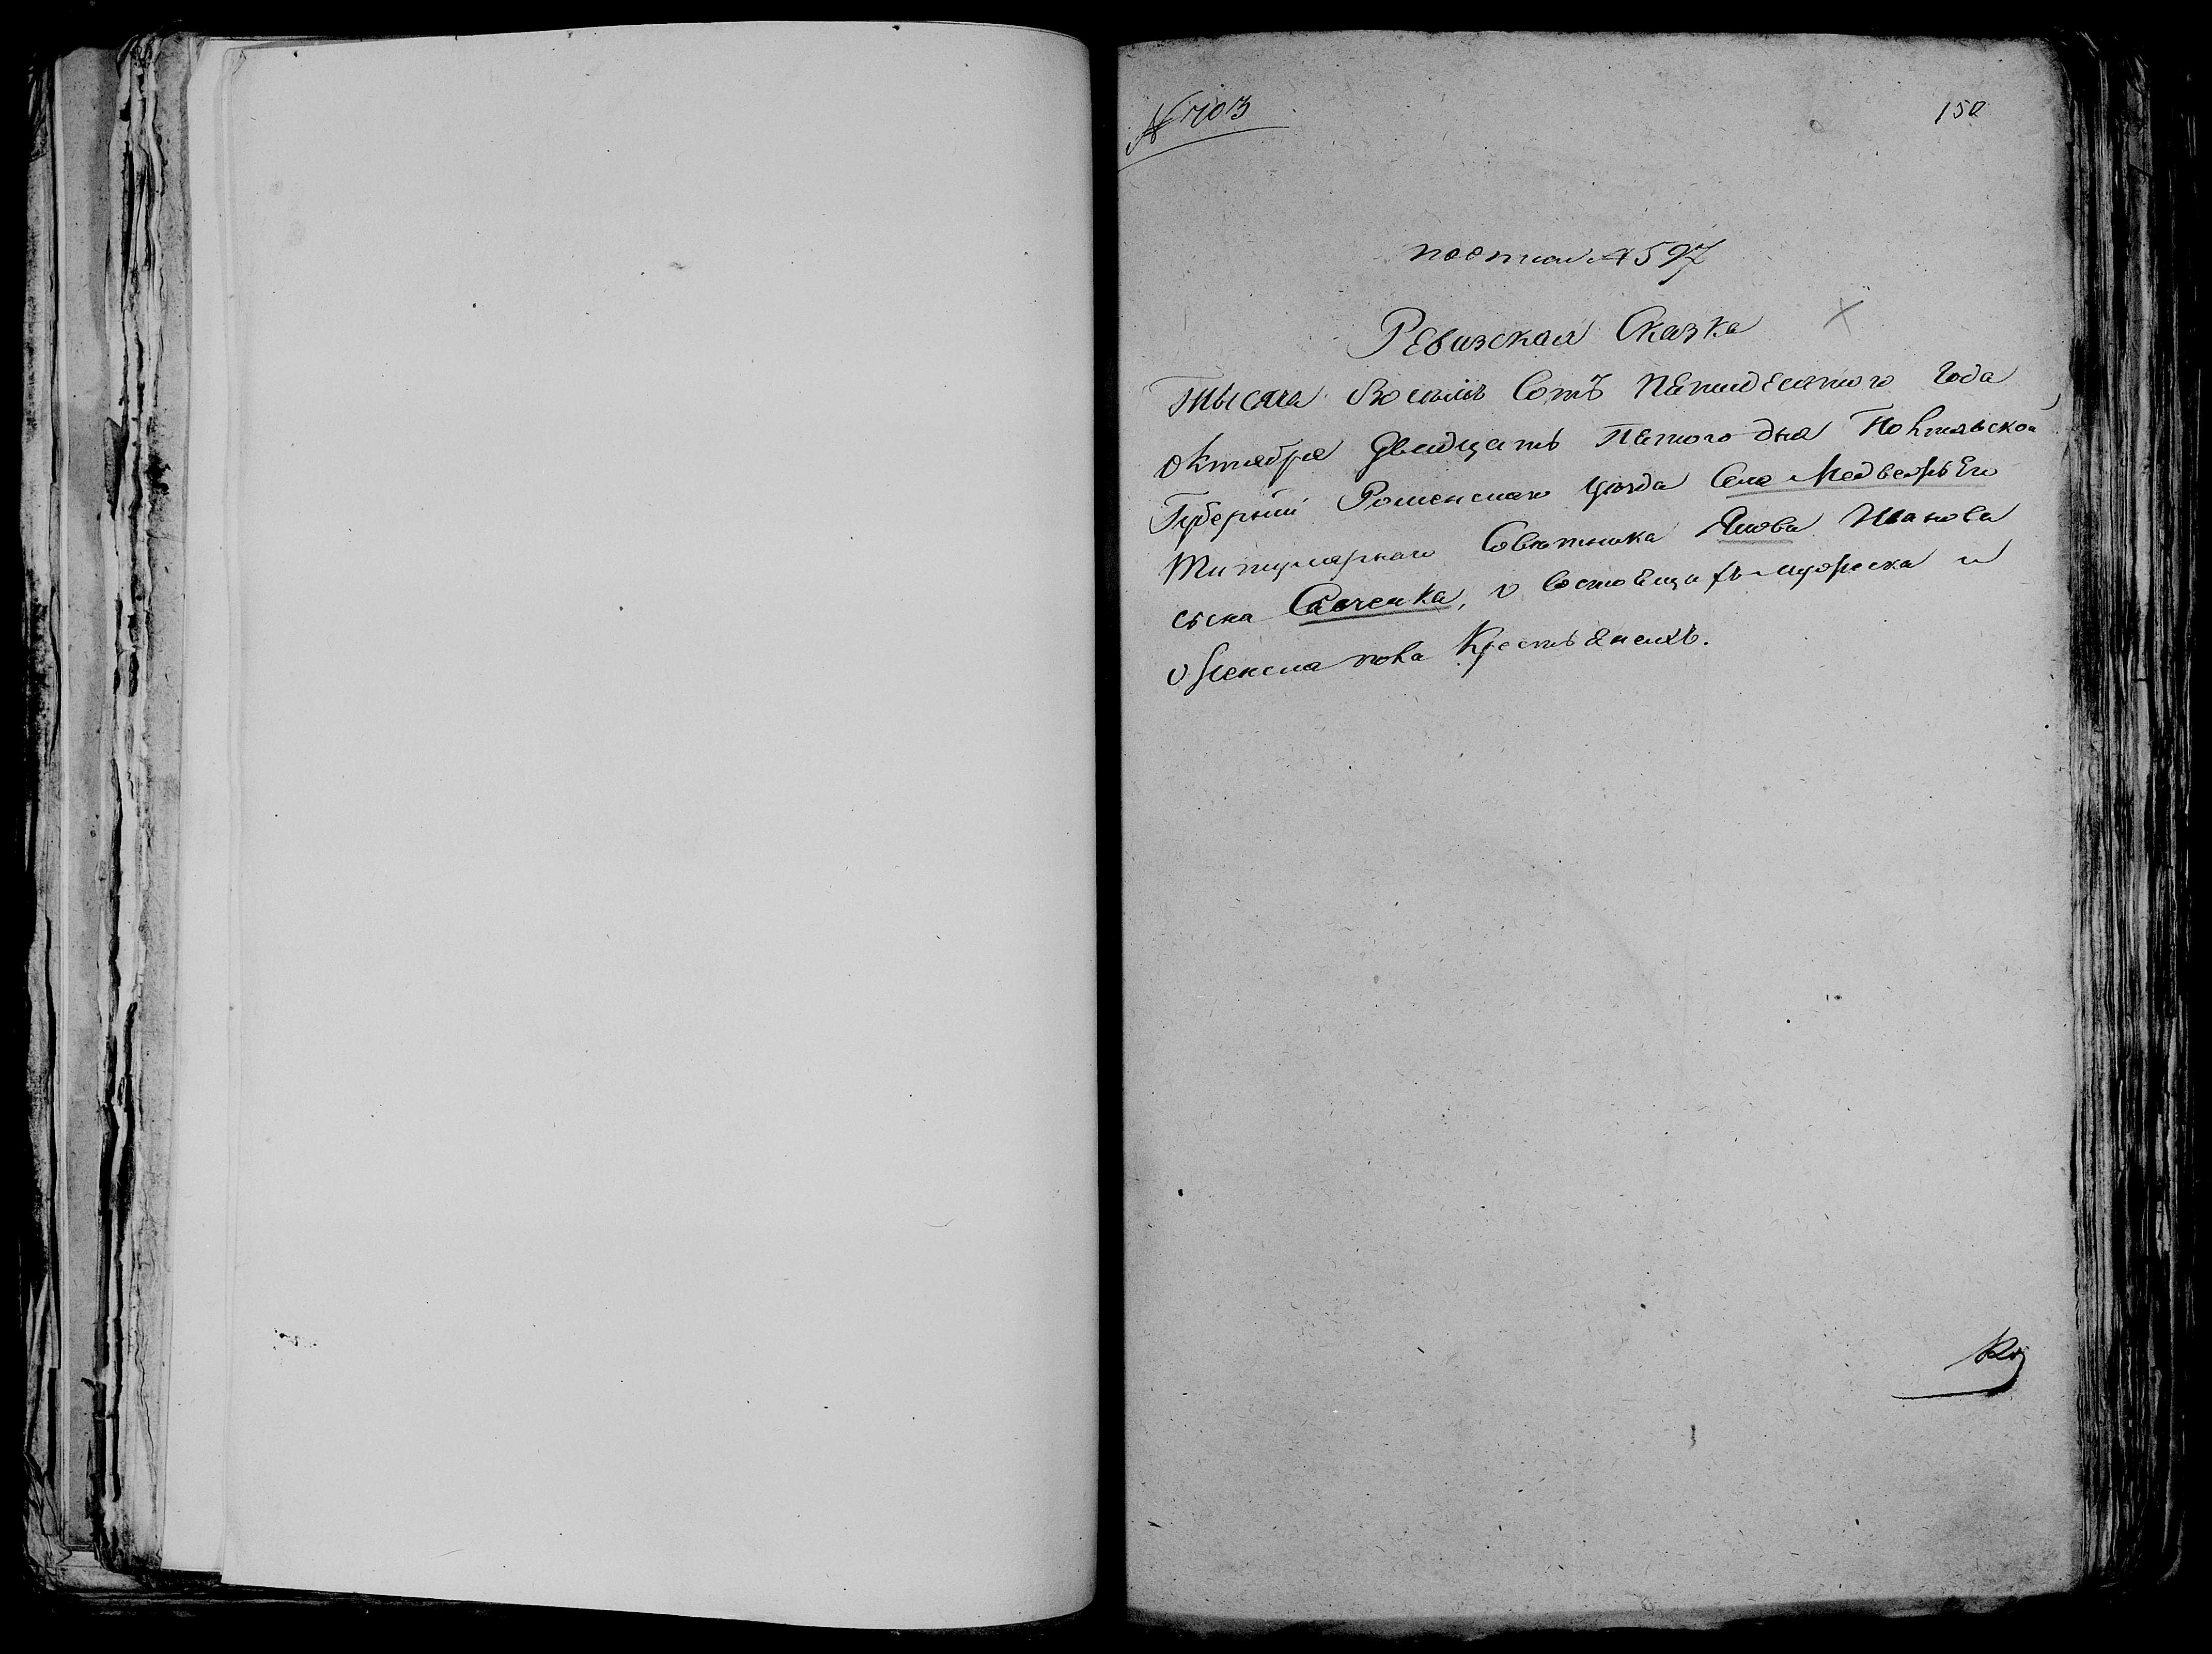 № 703
150
по описи № 597
Ревизская Сказка
Тысяча Восемь Сотъ Пятидесятого Года
Октября Двадцать Пятого дня Полтавской
Губерніи Роменскаго Уѣзда Села Медвежъего
Титулярнаго Совѣтника Якова Иванова
сына Савченка, о Состоящихъ мужеска и
женска пола Крестьянехъ.